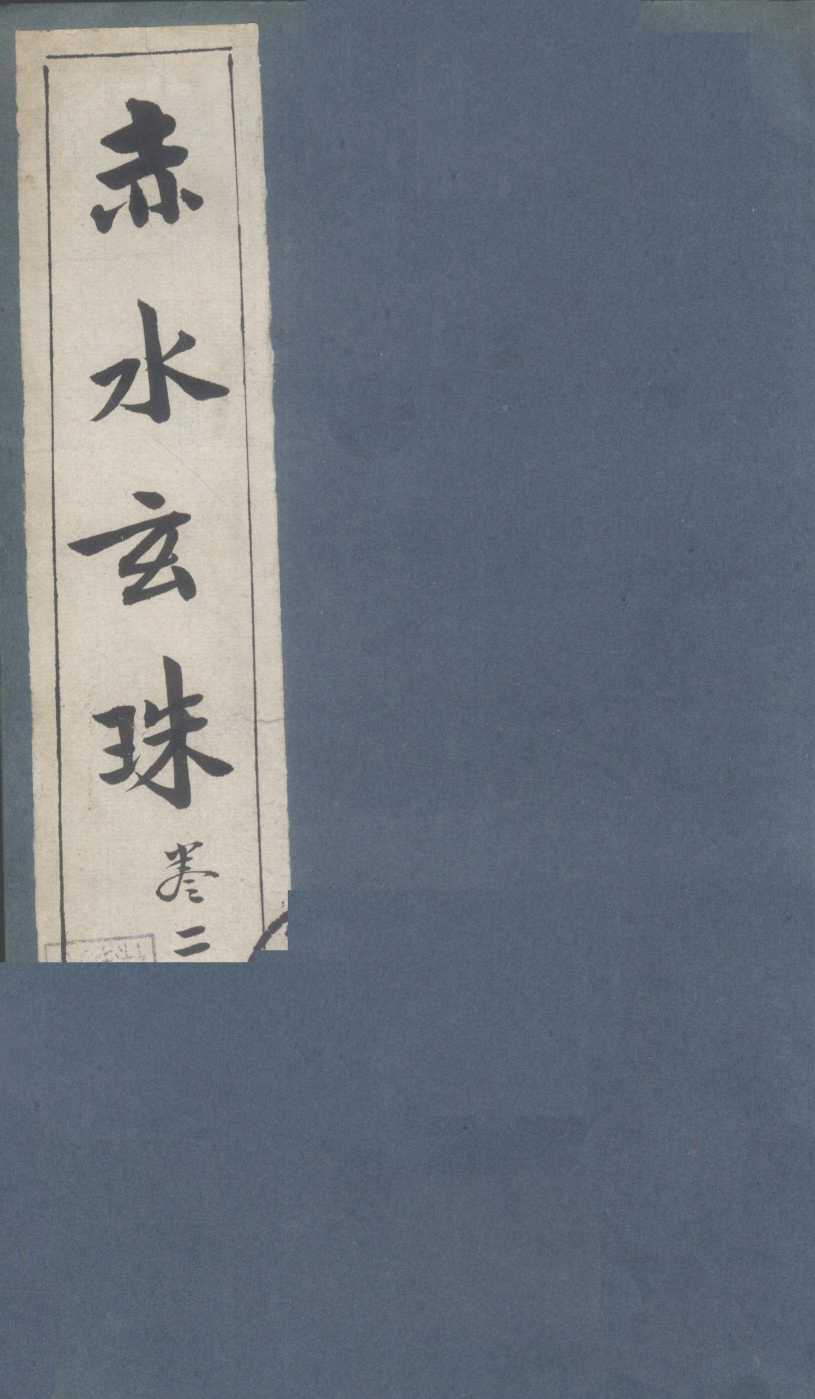 赤水玄珠
卷二